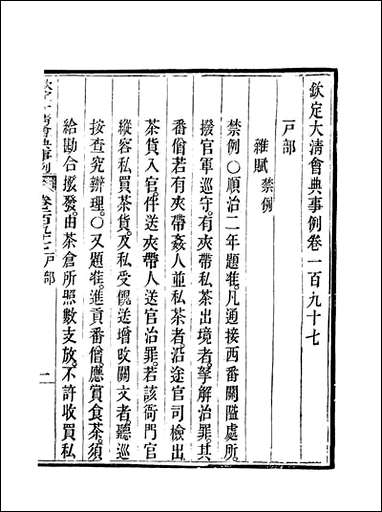 欽定大清會典事例卷一百九十七
戸部
雜賦 禁例
禁例〇順治二年題准凡通接西番關隘處所
撥官軍巡守有夾帶私茶出境者拏解治罪其
番僧若有夾帶姦人並私茶者沿途官司檢出
茶貨入官伴送夾帶人送官治罪若該衙門官
縱容私買茶貨及私受餽送增改關文者聽巡
按查究辦理〇又題准進貢番僧應賞食茶須
給勘合撥發由茶倉所照數支放不許收買私
戸部